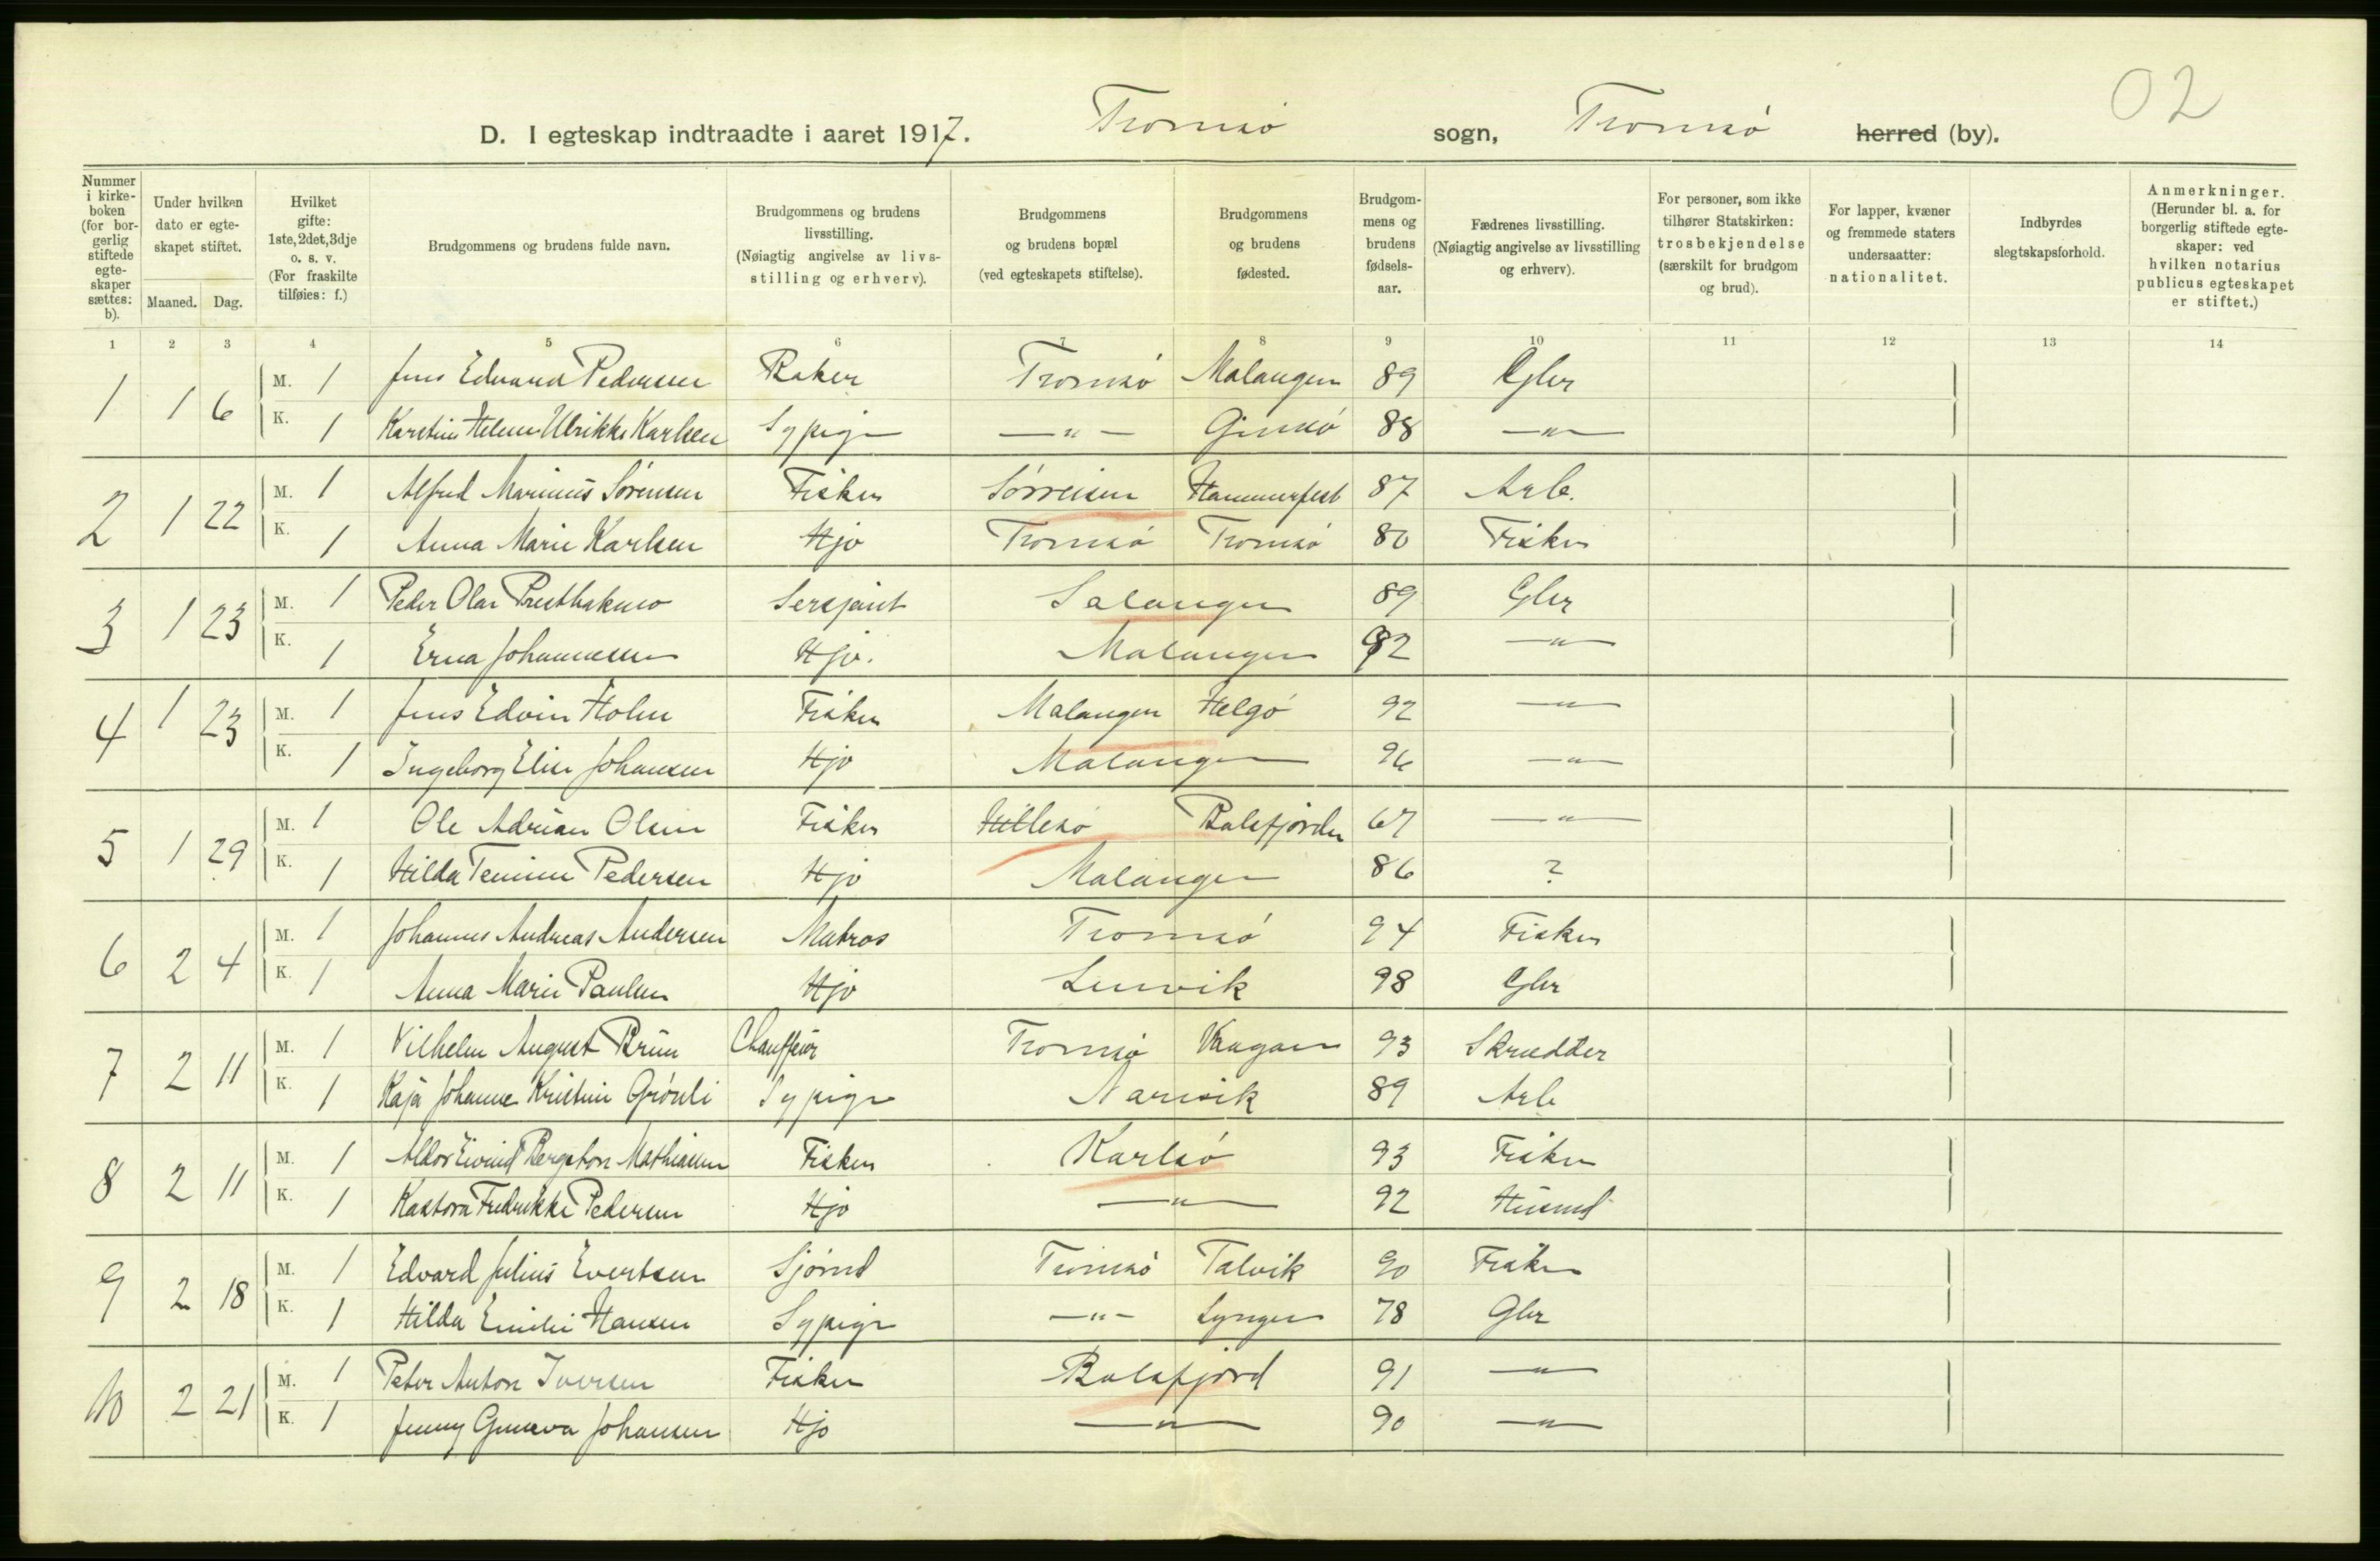 02
D. I egteskap indtraadte i aaret 1917. Tromsø sogn, Tromsø herred (by).
Nummer i kirke-boken (for bor-gerlig stiftede egte-skaper sættes: b).
Under hvilken dato er egte-skapet stiftet.
Maaned. Dag.
Hvilket gifte: 1ste, 2det, 3dje o. s. v. (For fraskilte tilføies: f.)
Brudgommens og brudens fulde navn.
Brudgommens og brudens livsstilling. (Nøiagtig angivelse av livs-stilling og erhverv).
Brudgommens og brudens bopæl (ved egteskapets stiftelse).
Brudgommens og brudens fødested.
Brudgom-mens og brudens fødsels-aar.
Fædrenes livsstilling. (Nøiagtig angivelse av livsstilling og erhverv).
For personer, som ikke tilhører Statskirken: trosbekjendelse (særskilt for brudgom og brud).
For lapper, kvæner og fremmede staters undersaatter: nationalitet.
Indbyrdes slegtskapsforhold.
Anmerkninger. (Herunder bl. a. for borgerlig stiftede egte-skaper: ved hvilken notarius publicus egteskapet er stiftet.)
1 2 3 4 5 6 7 8 9 10 11 12 13 14
1 1 6 M. 1 Jens Edvard Pedersen Baker Tromsø Malangen 89 Gbr
K. 1 Karstine Helene Ulrikke Karlsen Sypige — " — Gimsø 88 — " —
2 1 22 M. 1 Alfred Marinus Sørensen Fisker Sørreisen Hammerfest 87 Arb.
K. 1 Anna Marie Karlsen Hjo Tromsø Tromsø 80 Fisker
3 1 23 M. 1 Peder Olai Sersjant Salangen 89 Gbr
K. 1 Erna Johannesen Hjo. Malangen 92 — " —
4 1 23 M. 1 Jens Edvin Holm Fisker Malangen Helgø 92 — " —
K. 1 Ingeborg Elise Johansen Hjo Malangen 96 — " —
5 1 29 M. 1 Ole Adrian Olsen Fisker Hillesø Balsfjorden 67 — " —
K. 1 Hilda Pedersen Hjo Malangen 86 ?
6 2 4 M. 1 Johannes Andreas Andersen Matros Tromsø 94 Fisker
K. 1 Anna Marie Paulsen Hjo Lenvik 98 Gbr
7 2 11 M. 1 Vilhelm August Brun Chauffeur Tromsø Vaagan 93 Skrædder
K. 1 Kaja Johanne Kristine Grønli Sypige Narvik 89 Arb
8 2 11 M. 1 Aldor Eivind Bergeton Mathiassen Fisker Karlsø 93 Fisker
K. 1 Kastora Fredrikke Pedersen Hjo — " — 92 Husmd
9 2 18 M. 1 Edvard Julius Evertsen Sjømd Tromsø Talvik 90 Fisker
K. 1 Hilda Emilie Hansen Sypige — " — Lyngen 78 Gbr
10 2 21 M. 1 Peter Anton Iversen Fisker Balsfjord 91 — " —
K. 1 Jenny Johansen Hjo — " — 90 — " —